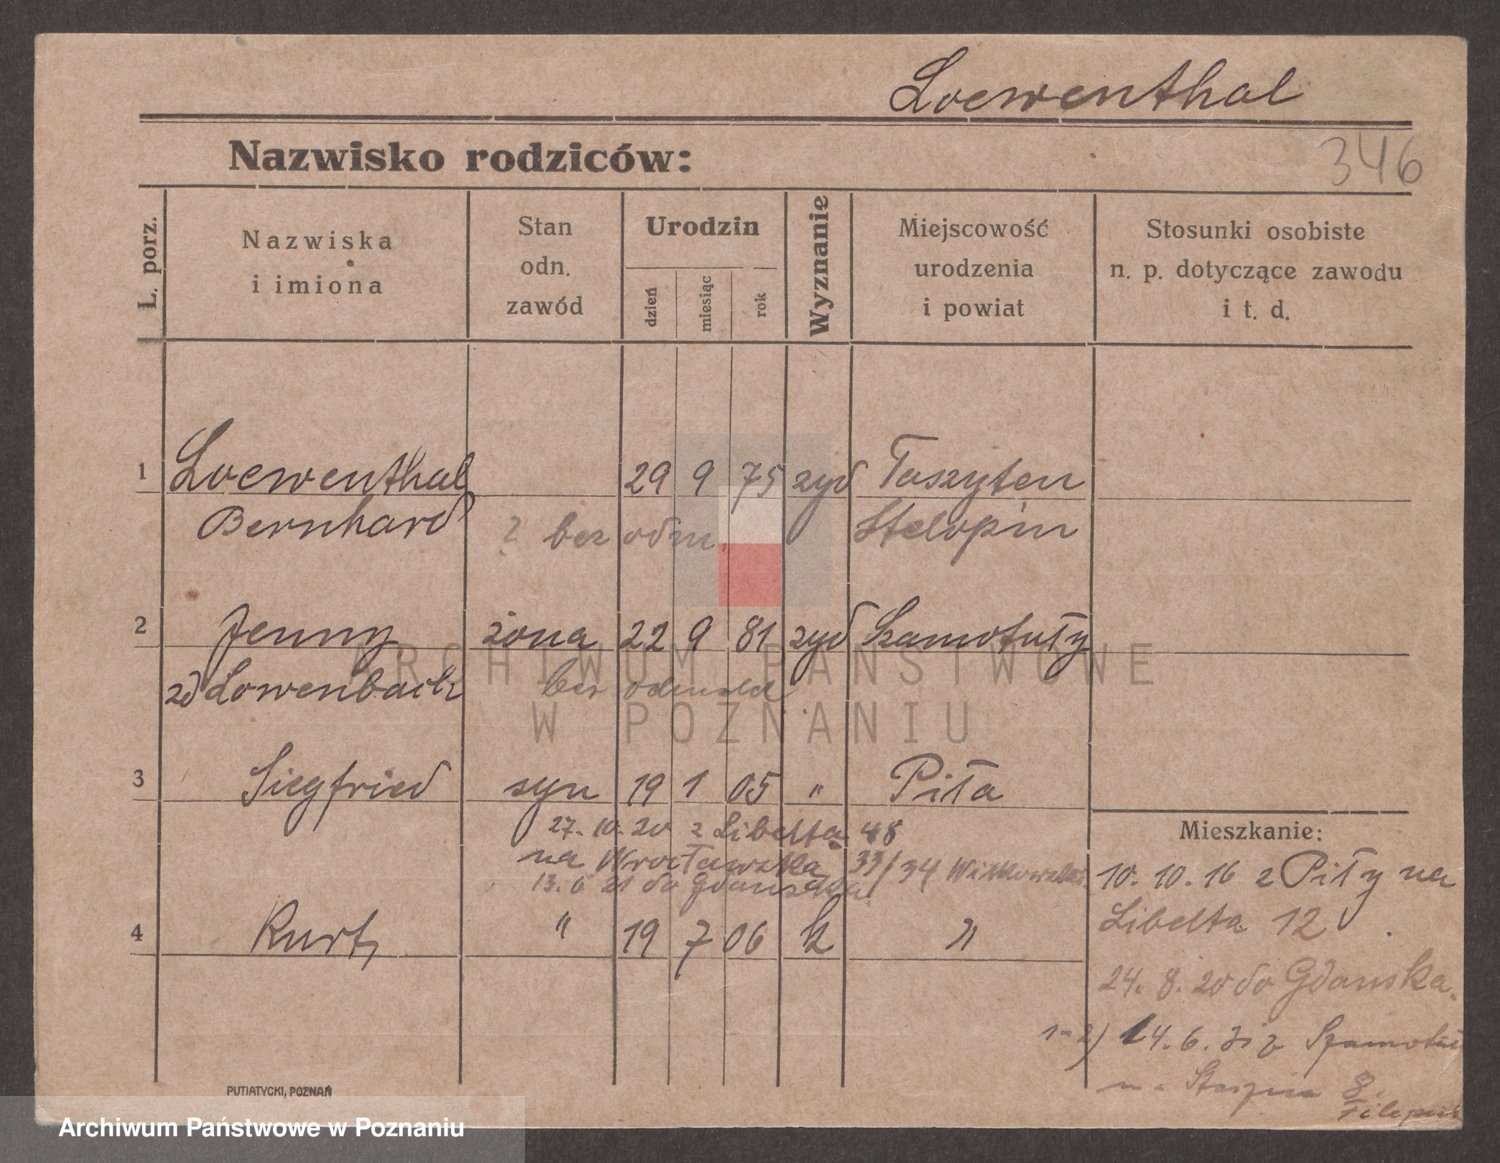 Loewenthal
Nazwisko rodziców:
346
Ł. porz.
Nazwiska
i imiona
Stan
odn.
zawód
Urodzin
dzień
miesiąc
rok
Wyznanie
Miejscowość
urodzenia
i powiat
Stosunki osobiste
n. p. dotyczące zawodu
i t. d.
1 Loewenthal 29 9 75 zyd Taszyten
Bernhard ? bez odm.
2 Jenny żona 22 9 81 zyd Szamotuły
zd Lowenbach bez
3 Siegfried syn 19 1 05 " Piła
27. 10. 20 z Libelta 48
na Wrocławska 33/34
13. 6 21 do Gdańska
4 Kurt " 19 7 06 "
Mieszkanie:
10. 10. 16 z Piły na
Libelta 12
24. 8. 20 do Gdańska.
1-2) 14. 6. 31 z
8.
PUTIATYCKI, POZNAŃ
ARCHIWUM PAŃSTWOWE
W POZNANIU
Archiwum Państwowe w Poznaniu